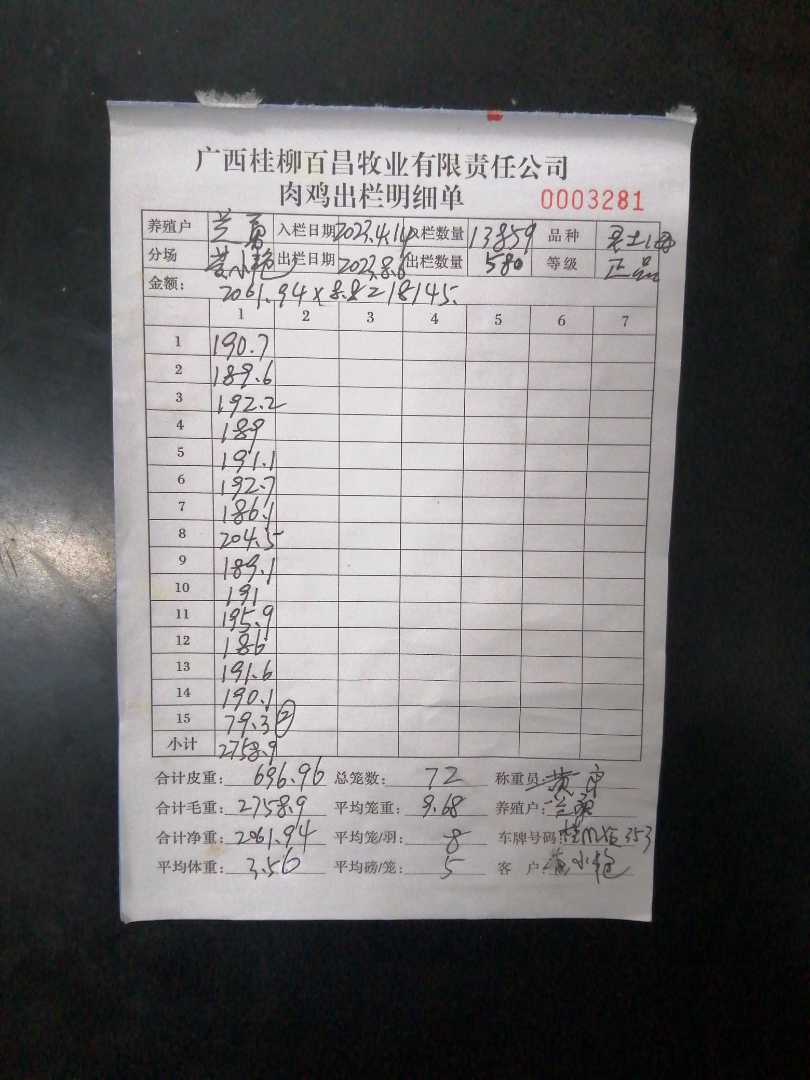 广西桂柳百昌牧业有限责任公司
肉鸡出栏明细单 0003281
养殖户 兰勇 入栏日期 2023.4.14 入栏数量 13859 品种
分场 黄小艳 出栏日期 2023.8.6 出栏数量 580 等级 正品
金额: 2061.94×8.8=18145.
1 2 3 4 5 6 7
1 190.7
2 189.6
3 192.2
4 189
5 191.1
6 192.7
7 186.1
8 204.5
9 189.1
10 191
11 195.9
12 186
13 191.6
14 190.1
15 79.3 ②
小计 2758.9
合计皮重: 696.96 总笼数: 72 称重员:
合计毛重: 2758.9 平均笼重: 9.68 养殖户:
合计净重: 2061.94 平均笼/羽: 8 车牌号码: 353
平均体重: 3.56 平均磅/笼: 5 客 户: